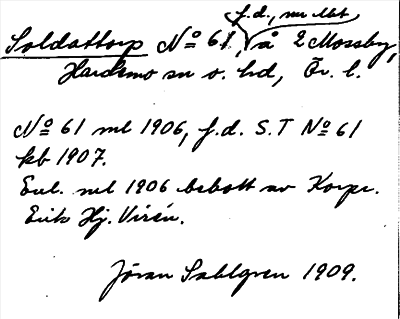 f.d., nu lbt
Soldattorp No 61, å 2 Mossby,
Hardemo sn o. hd, Ör. l.
No 61 ml 1906, f.d. S.T No 61
kb 1907.
Enl. ml 1906 bebott av Korpr.
Erik Hj. Virén.
Jöran Sahlgren 1909.